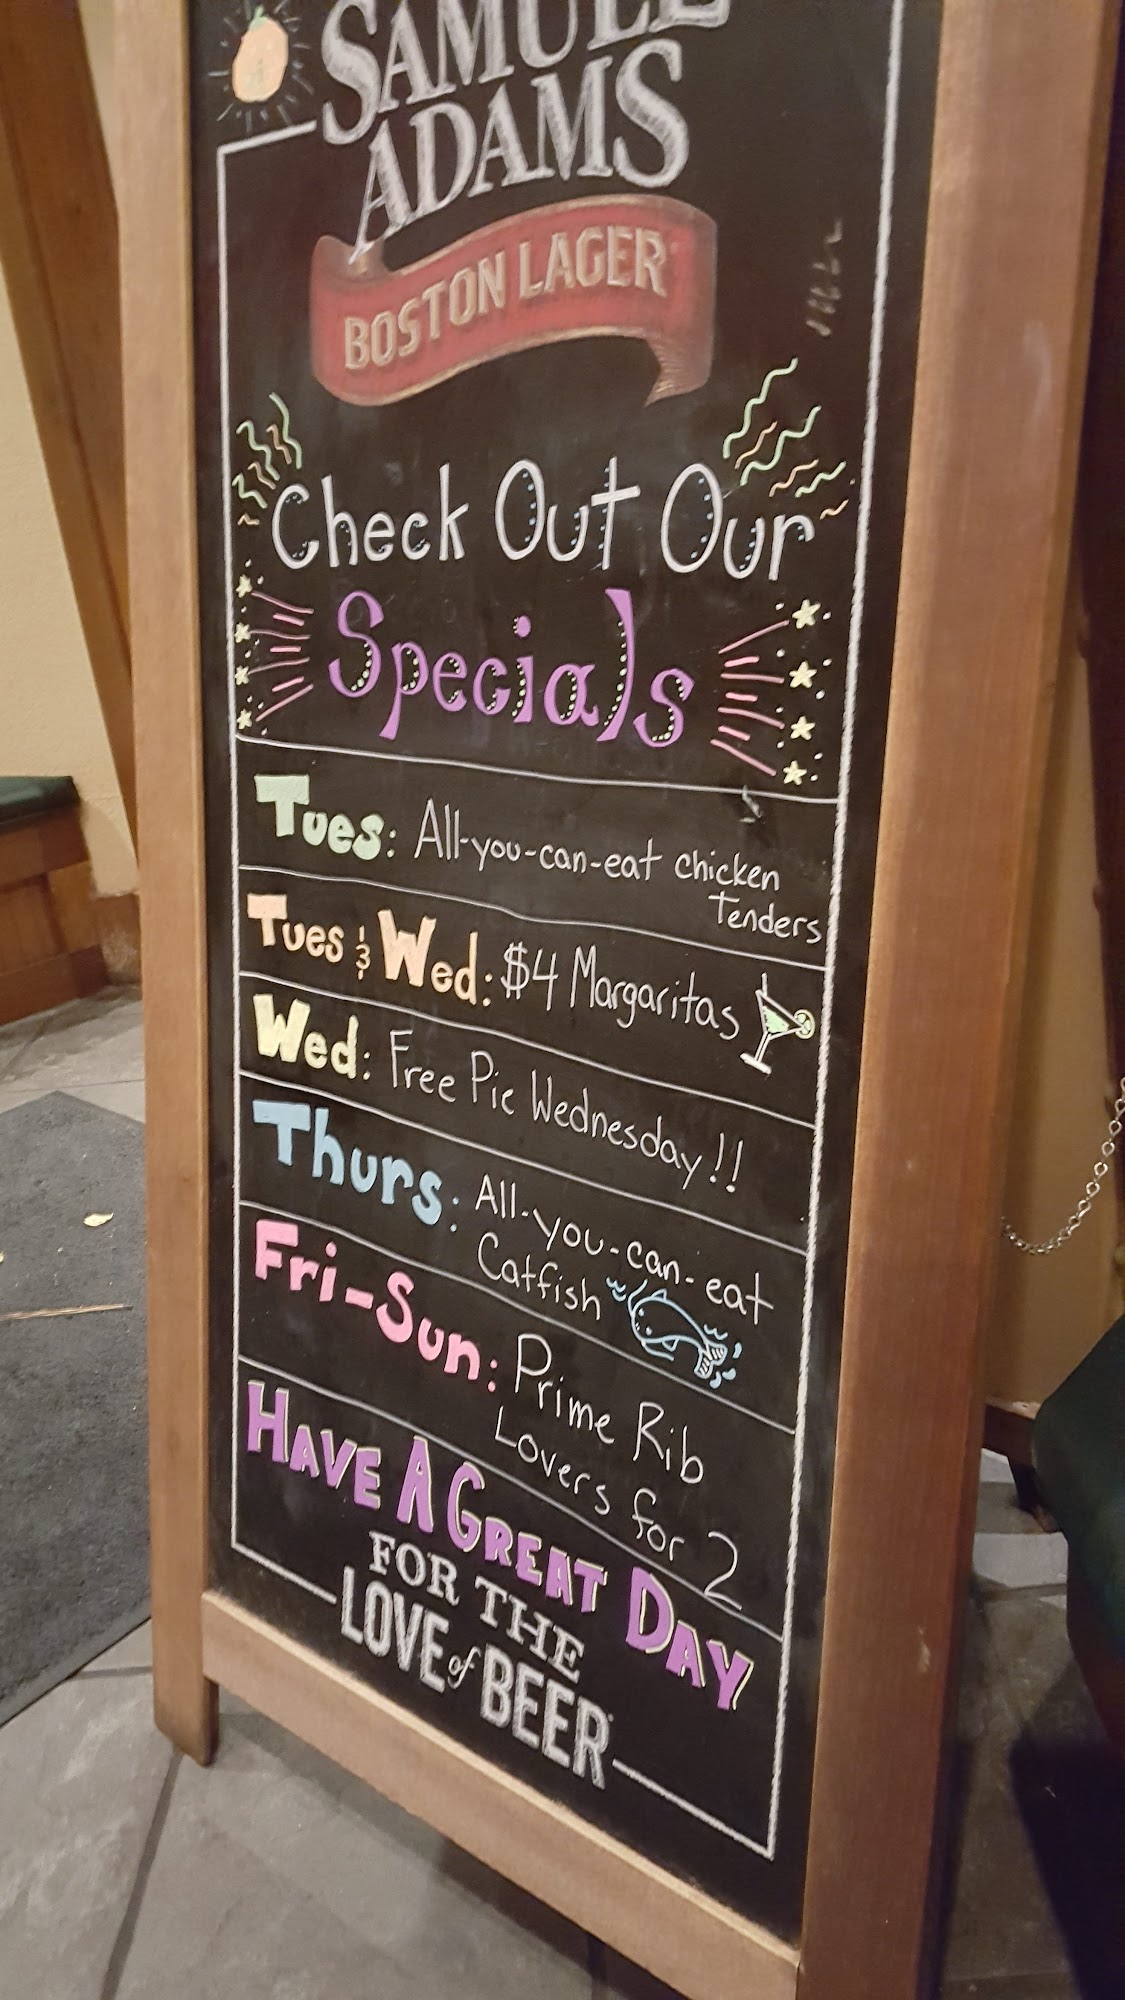 SAMUEL
ADAMS
BOSTON LAGER
Check Out Our
Specials
Tues: All-you-can-eat chicken
Tenders
Tues & Wed: $4 Margaritas
Wed: Free Pie Wednesday!!
Thurs: All-you-can-eat
Catfish
Fri-Sun: Prime Rib
Lovers for 2
HAVE A GREAT DAY
FOR THE
LOVE of BEER